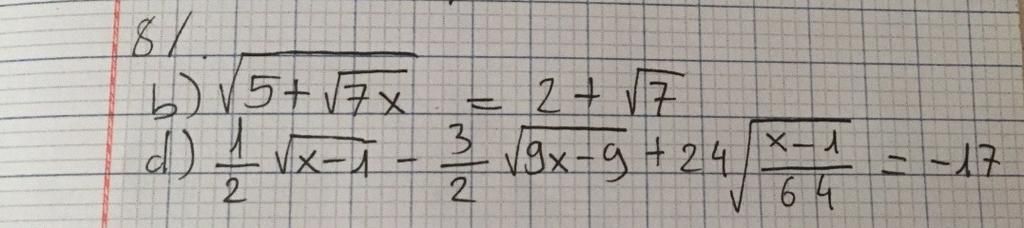 8/.
b) √(5+√(7x)) = 2 + √7
d) 1/2 √(x-1) - 3/2 √(9x-9) + 24√((x-1)/64) = -17